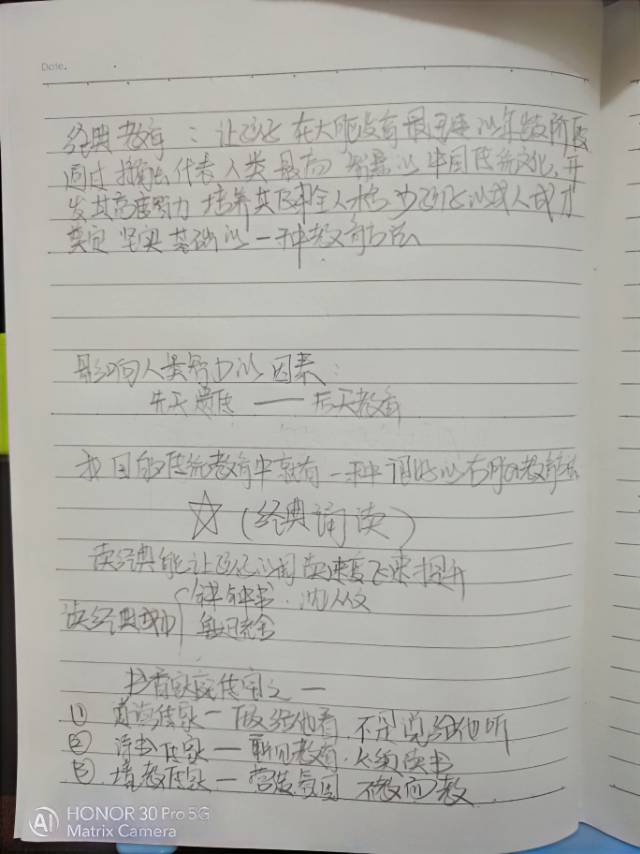 Date.
经典教育：让孩子在大脑发育最迅速的年龄阶段
通过 代表人类最高智慧的中国传统文化，开
发其高度智力 培养其健全人格 为孩子的成人成才
奠定坚实基础的一种教育方法
影响人类智力的因素：
先天遗传——后天教育
我国的传统教育中就有一种 的右脑教育法
☆（经典诵读）
读经典能让孩子的阅读速度飞速提升
读经典成功 钱钟书．沈从文
书香家庭传家之一
① 道德传家—做给他看．不是说给他听
② 诗书传家— 教育． 读书
③ 境教传家—营造氛围 不教而教
HONOR 30 Pro 5G
Matrix Camera